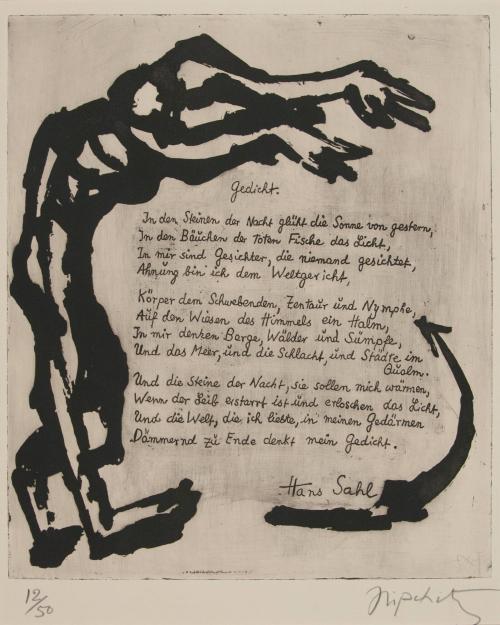 Gedicht.
In den Steinen der Nacht glüht die Sonne von gestern,
In den Bäuchen der toten Fische das Licht,
In mir sind Gesichter, die niemand gesichtet,
Ahnung bin ich dem Weltgericht,
Körper dem Schwebenden, Zentaur und Nymphe,
Auf den Wiesen des Himmels ein Halm,
In mir denken Berge, Wälder und Sümpfe,
Und das Meer, und die Schlacht, und Städte im
Qualm.
Und die Steine der Nacht, sie sollen mich wärmen,
Wenn der Leib erstarrt ist und erloschen das Licht,
Und die Welt, die ich liebte, in meinen Gedärmen
Dämmernd zu Ende denkt mein Gedicht.
Hans Sahl
12/50